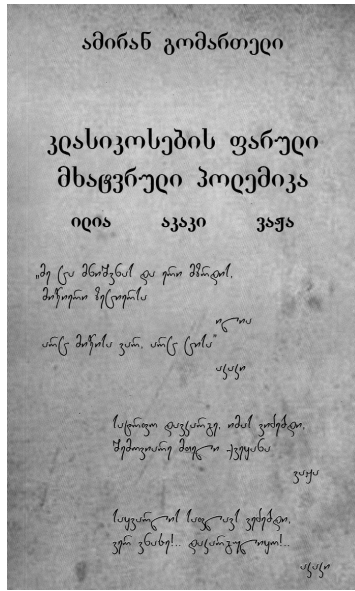 ამირან გომართელი
კლასიკოსების ფარული
მხატვრული პოლემიკა
ილია აკაკი ვაჟა
„მე ცა მნიშვნას და ერი მზრდის,
მიწიერი ზეციერსა
ილია
არც მიწისა ვარ, არც ცისა"
აკაკი
სატრფო დავკარგე, იმას ვეძებდი,
შემოვიარე მთელი ქვეყანა
ვაჟა
საყვარლის საფლავს ვეძებდი,
ვერ ვნახე!.. დაკარგულიყო!..
აკაკი